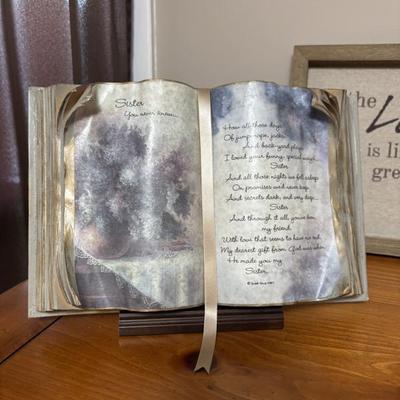 Sister
You never knew...
How all those days
Of jump-rope, jacks,
And back-yard plays
I loved your funny, special ways...
Sister
And all those nights we fell asleep
On promises we'd never keep
And secrets dark, and very deep...
Sister
And through it all, you've been
my friend,
With love that seems to have no end.
My dearest gift from God was when
He made you my
Sister.
the
is li
gre